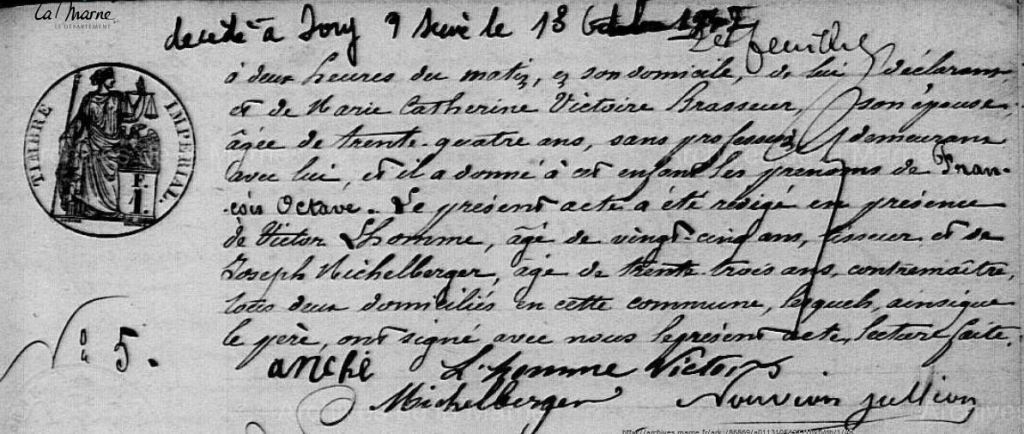 La Marne
LE DÉPARTEMENT
décédé à Ivry s/ Seine le 18
à deux heures du matin, en son domicile, de lui déclarant
et de Marie Catherine Victoire Brasseur, son épouse,
âgée de trente-quatre ans, sans profession, demeurant
avec lui, et il a donné à cet enfant les prénoms de Fran-
-çois Octave. Le présent acte a été rédigé en présence
de Victor Lhomme, âgé de vingt-cinq ans, tisseur et de
Joseph Michelberger, âgé de trente-trois ans, contremaître,
tous deux domiciliés en cette commune, lesquels, ainsi que
le père, ont signé avec nous le présent acte, lecture faite.
TIMBRE IMPÉRIAL.
F. 1.
5.
anché L'homme Victor
Michelberger Nouvion jullion